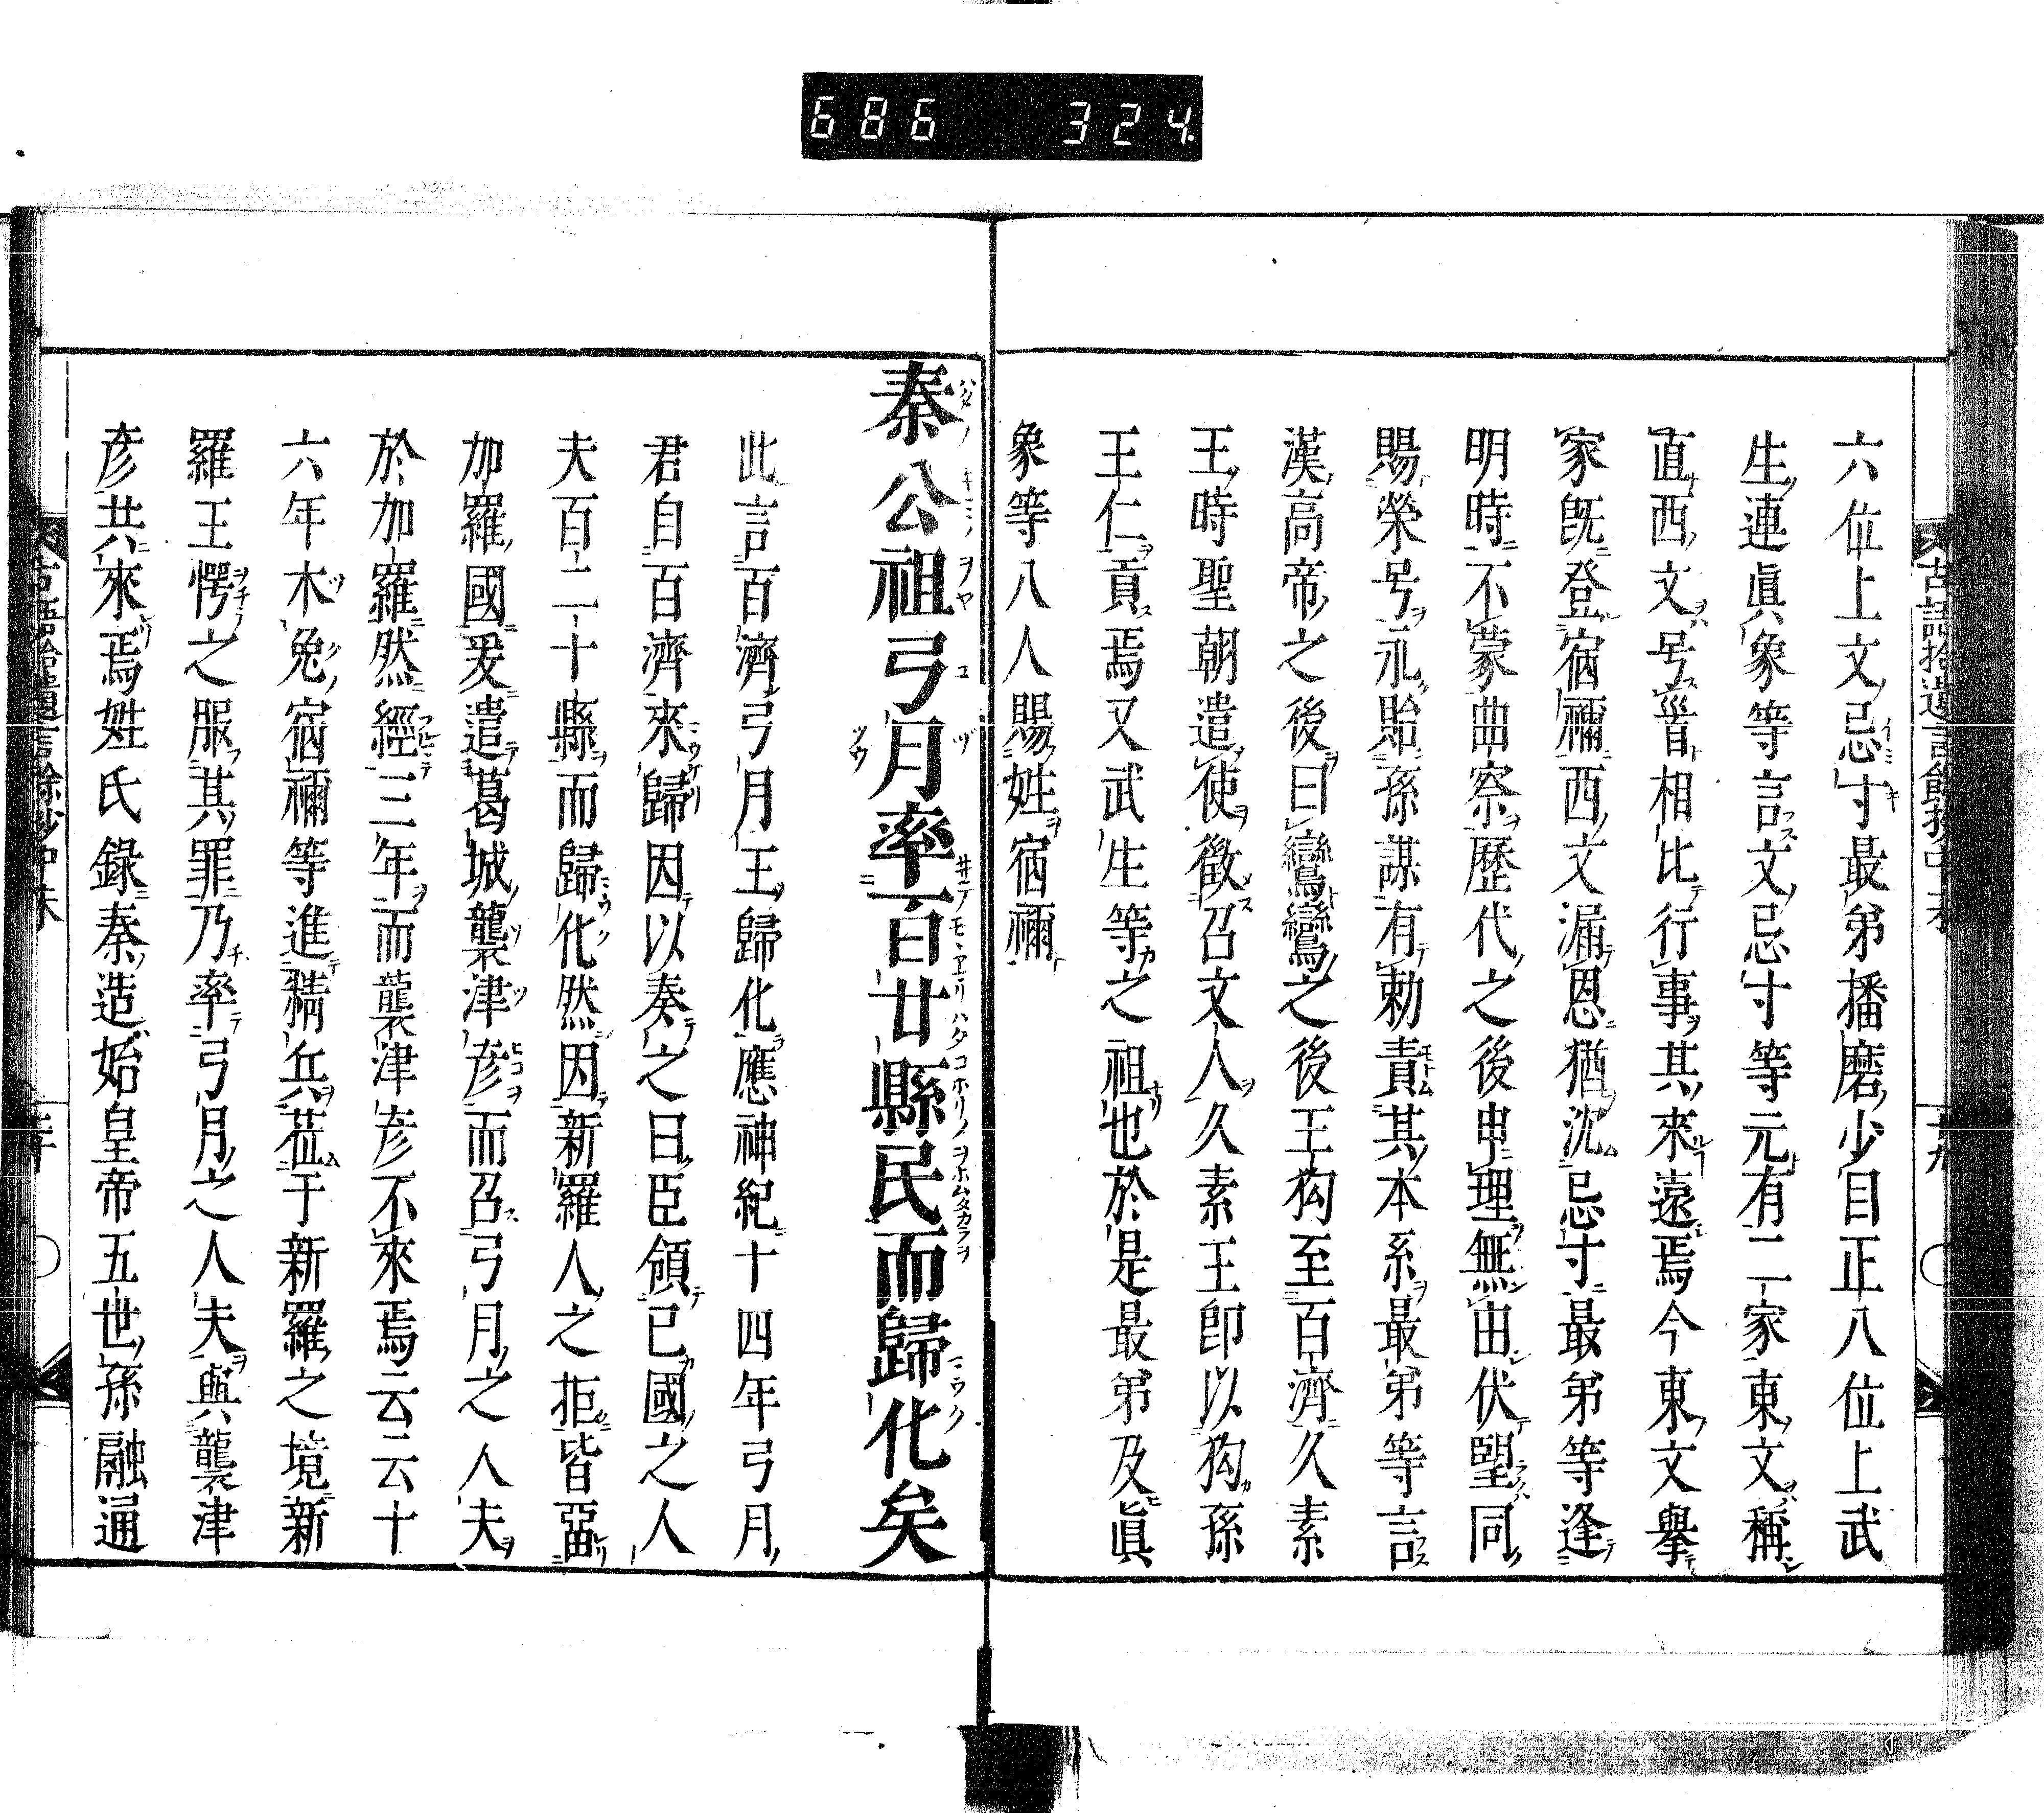 686 324
六位上文忌寸最弟播磨少目正八位上武
生連眞象等言文忌寸等元有二家東文稱
直西文号首相比行事其來遠焉今東文擧
家既登宿禰西文漏恩猶沈忌寸最弟等逢
明時不蒙曲察歷代之後申理無由伏望同
賜榮号永貽孫謀有勅責其本系最弟等言
漢高帝之後曰鸞鸞之後王狗至百濟久素
王時聖朝遣使徵召文人久素王卽以狗孫
王仁貢焉又武生等之祖也於是最弟及眞
象等八人賜姓宿禰
秦公祖弓月率百廿縣民而歸化矣
此言百濟弓月王歸化應神紀十四年弓月
君自百濟來歸因以奏之曰臣領己國之人
夫百二十縣而歸化然因新羅人之拒皆留
加羅國爰遣葛城襲津彦而召弓月之人夫
於加羅然經三年而襲津彦不來焉云云十
六年木菟宿禰等進精兵莅于新羅之境新
羅王愕之服其罪乃率弓月之人夫與襲津
彦共來焉姓氏錄秦造始皇帝五世孫融通